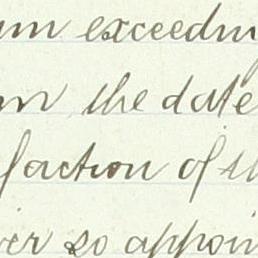 um exceedin
m the date
faction of th
ver so appoin